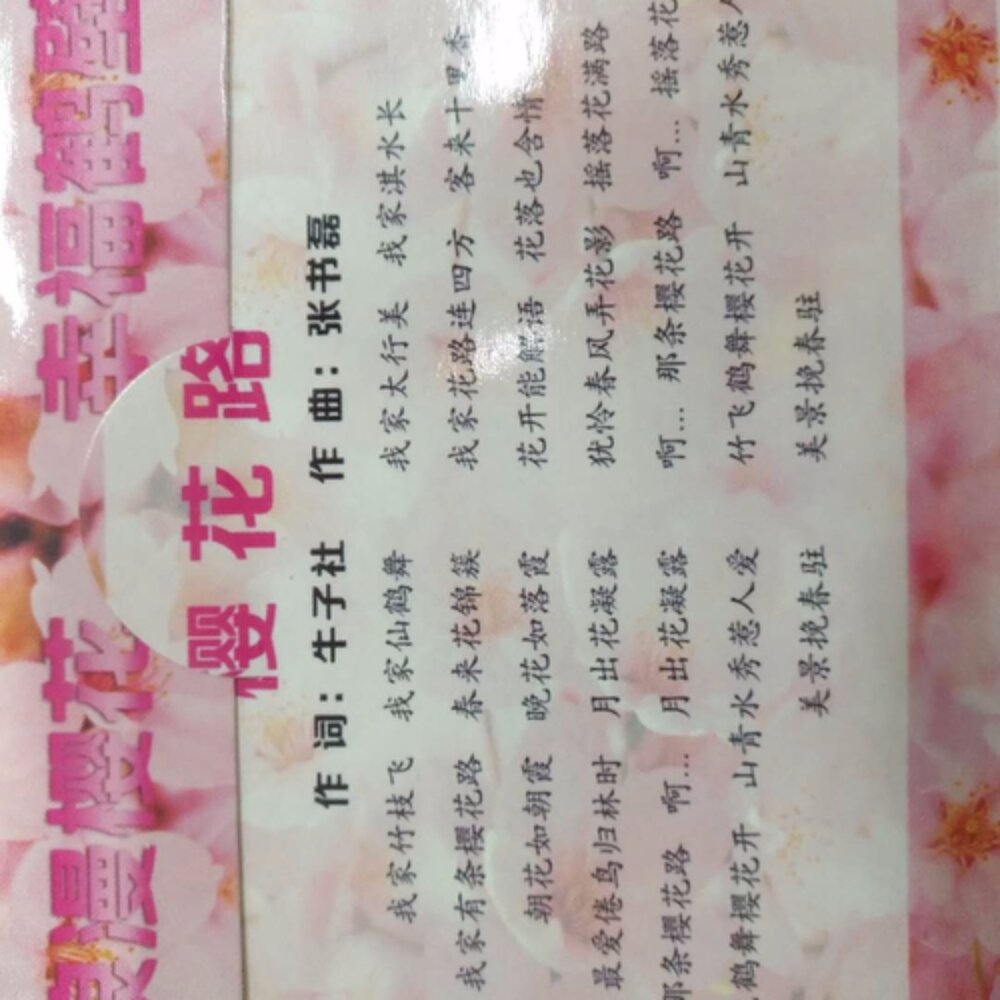 漫樱花 幸福鹤壁
樱花路
作 词：牛子社 作 曲：张书磊
我家竹枝飞 我家仙鹤舞 我家太行美 我家淇水长
我家有条樱花路 春来花锦簇 我家花路连四方 客来十里香
朝花如朝霞 晚花如落霞 花开能解语 花落也含情
最爱倦鸟归林时 月出花凝露 犹怜春风弄花影 摇落花满路
那条樱花路 啊... 月出花凝露 啊... 那条樱花路 啊... 摇落花
鹤舞樱花开 山青水秀惹人爱 竹飞鹤舞樱花开 山青水秀惹
美景挽春驻 美景挽春驻